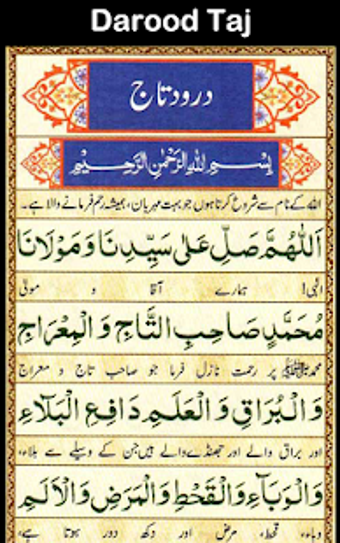 Darood Taj
درود تاج
بِسْمِ اللهِ الرَّحْمٰنِ الرَّحِيْمِ
اللہ کے نام سے شروع کرتا ہوں جو بہت مہربان، ہمیشہ رحم فرمانے والا ہے۔
اَللّٰهُمَّ صَلِّ عَلٰى سَيِّدِنَا وَمَوْلَانَا
الٰہی! ہمارے آقا و مولیٰ
مُحَمَّدٍ صَاحِبِ التَّاجِ وَالْمِعْرَاجِ
محمد ﷺ پر رحمت نازل فرما جو صاحب تاج و معراج
وَالْبُرَاقِ وَالْعَلَمِ دَافِعِ الْبَلَاءِ
اور براق والے اور جھنڈے والے ہیں جن کے وسیلے سے بلاء،
وَالْوَبَاءِ وَالْقَحْطِ وَالْمَرَضِ وَالْاَلَمِ
وباء، قحط، مرض اور دکھ دور ہوتا ہے،